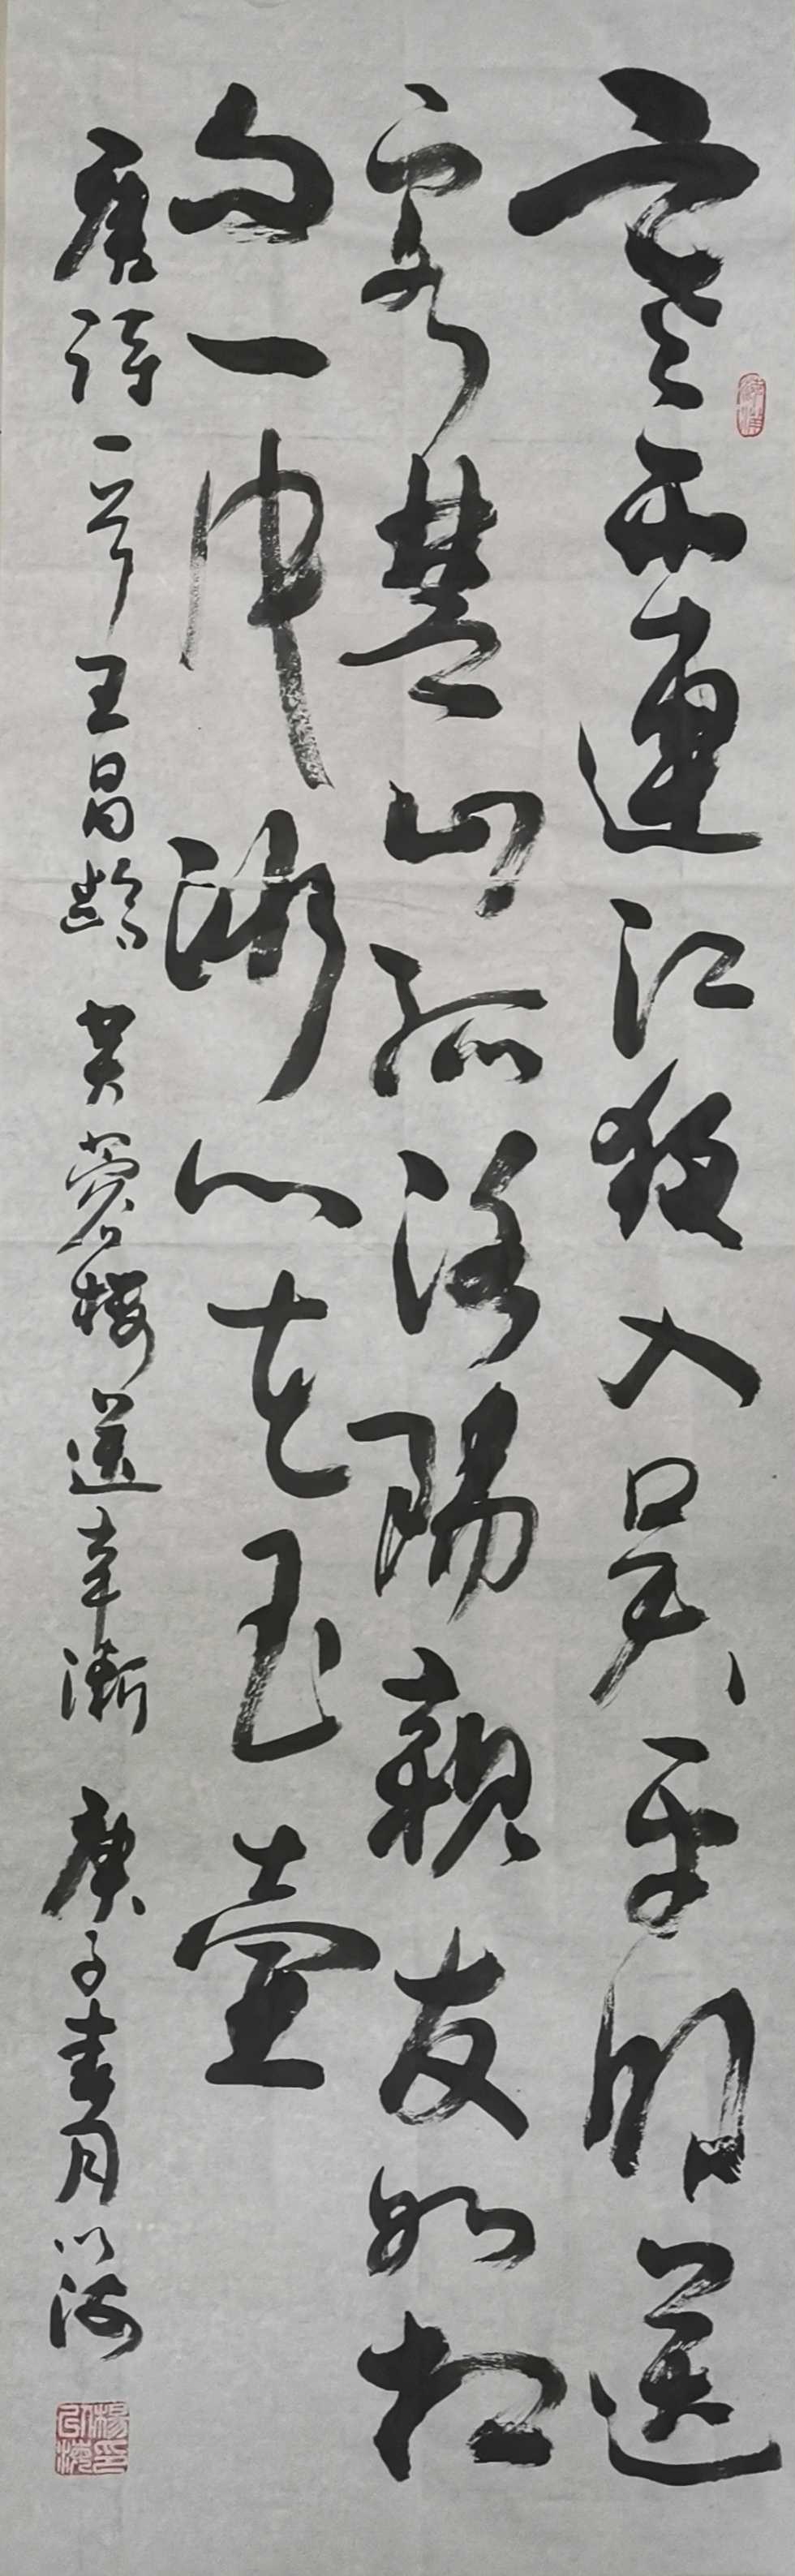 寒雨連江夜入吳平明送
客楚山孤洛陽親友如相
问一片冰心在玉壺
唐詩一首王昌齡芙蓉楼送辛漸庚子春月以海